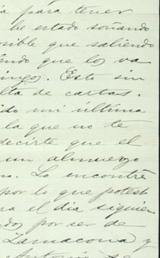 a para tener
he estado soñando
sible que saliendo
endo que los va
ingo). Esto sin
lta de cartas.
ido mi última
la que no te
decirte que el
un almuerzo
no. Lo encontré
por lo que
ra el dia siguien
do) por ser de
Zamacona y